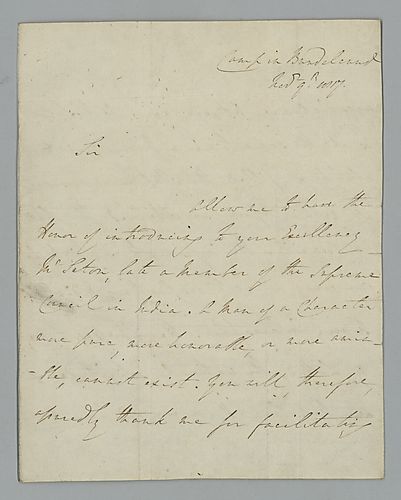 Camp in Bundelcund
Decr 9th 1817.
Sir
Allow me to have the
Honor of introducing to your Excellency
Mr Seton, late a Member of the Supreme
Council in India. A Man of a Character
more pure, more honorable, or more amia-
-ble, cannot exist. You will, therefore,
assuredly thank me for facilitating